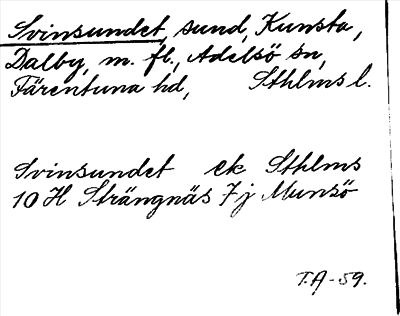 Svinsundet, sund, Kunsta,
Dalby, m. fl., Adelsö sn,
Färentuna hd, Sthlms l.
Svinsundet ek Sthlms
10 H Strängnäs 7 j Munsö
T.A-59.